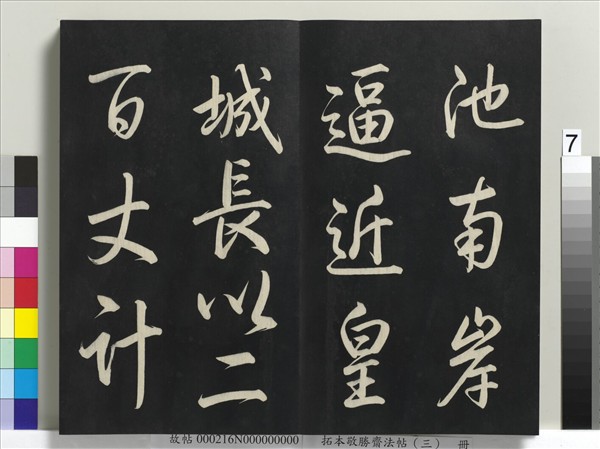 池南岸
逼近皇
城長以二
百丈計
7
故帖 000216N000000000 拓本敬勝齋法帖(三) 冊